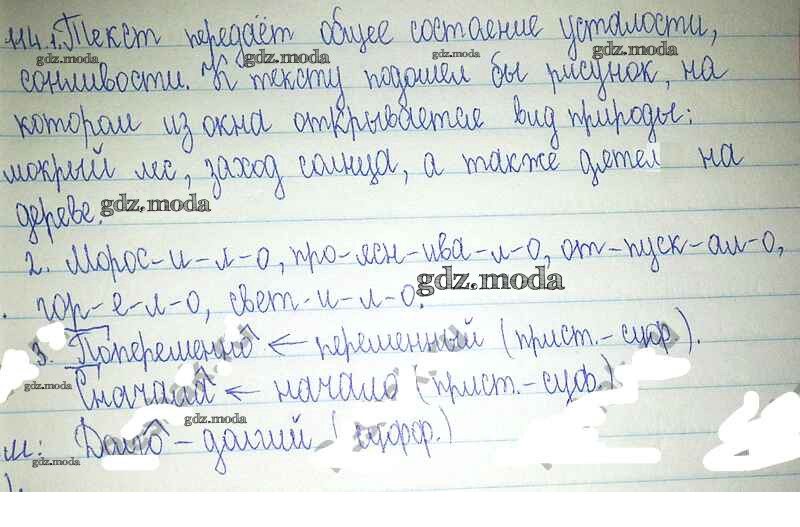 114.1. Текст передаёт общее состаение усталости,
gdz.moda gdz.moda gdz.moda gdz.moda
сонливости. К тексту подошел бы рисунок, на
котором из окна открывается вид природы:
мокрый лес, заход солнца, а также дятел на
дереве. gdz.moda
2. Морос-и-л-о, про-ясн-ива-л-о, от-пуск-ал-о,
гор-е-л-о, свет-и-л-о. gdz.moda
3. Попеременно ← переменный (прист.-суф).
gdz.moda Сначала ← начало (прист.-суф.)
gdz.moda
М: Долго - долгий (суфф.)
gdz.moda
1.